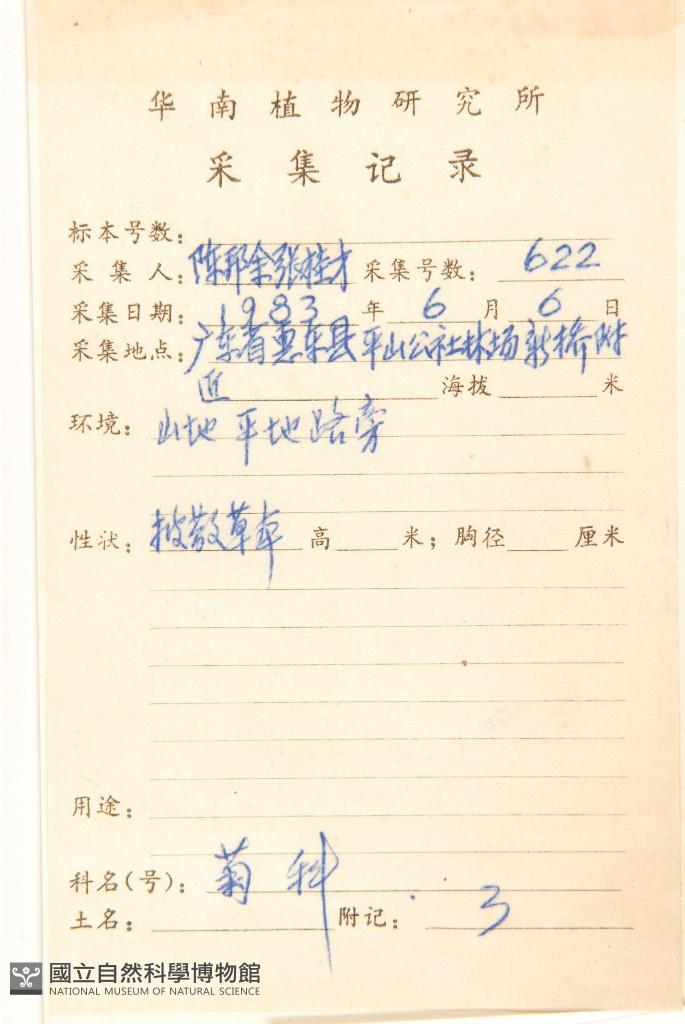 华南植物研究所
采集记录
标本号数:
采集人:陈邦余张桂才 采集号数: 622
采集日期: 1983 年 6 月 6 日
采集地点:广东省惠东县平山公社林场新桥附
近 海拔 米
环境: 山地 平地路旁
性状: 披散草本 高 米; 胸径 厘米
用途:
科名(号): 菊科
土名: 附记: 3
國立自然科學博物館
NATIONAL MUSEUM OF NATURAL SCIENCE